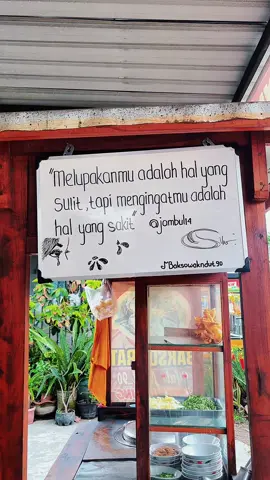 "Melupakanmu adalah hal yang
sulit, tapi mengingatmu adalah
hal yang sakit" @jambul14
BAKSO